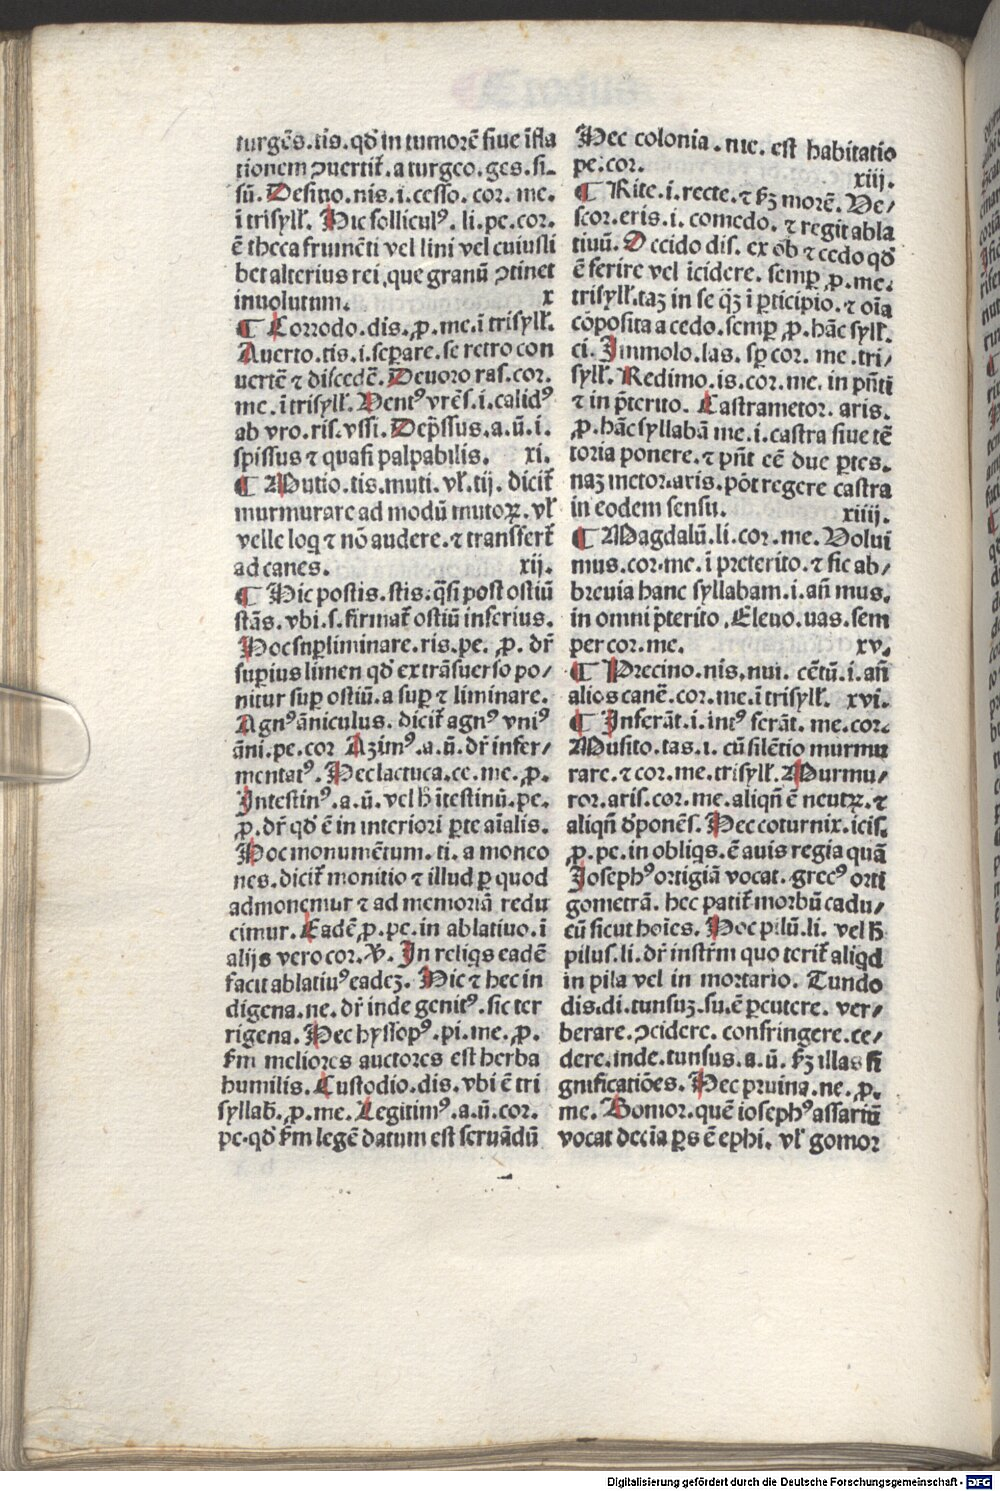 turgēs.tis. qđ in tumorē siue īfla
tionem ꝯuertit̄. a turgeo. ges. si-
sū. Desino. nis. i. cesso. cor. me.
ī trisyll̄. Hic follicul⁹. li. pe. cor.
ē theca frumēti vel lini vel cuiusli
bet alterius rei, que granū ꝯtinet
inuolutum. x
¶ Corrodo. dis. ꝓ. me. ī trisyll̄.
Auerto. tis. i. seꝑare. se retro con
uertē ⁊ discedē. Deuoro ras. cor.
me. ī trisyll̄. Vent⁹ vrēs. i. calid⁹
ab vro. ris. vssi. Dep̄ssus. a. ū. i.
spissus ⁊ quasi palpabilis. xi.
¶ Mutio. tis. muti. vl̄. tij. dicit̄
murmurare ad modū mutoꝝ. vl̄
velle loq ⁊ nō audere. ⁊ transfert̄
ad canes. xij.
¶ Hic postis. stis. q̄si post ostiū
stās. vbi. s. firmat̄ ostiū inferius.
Hoc suꝑliminare. ris. pe. ꝓ. dr̄
suꝑius limen qđ extrāsuerso po/
nitur suꝑ ostiū. a suꝑ ⁊ liminare.
Agn⁹ āniculus. dicit̄ agn⁹ vni⁹
āni. pe. cor Azim⁹. a. ū. dr̄ infer/
mentat⁹. Hec lactuca. ce. me. ꝓ.
Intestin⁹. a. ū. vel ħ ītestinū. pe.
ꝓ. dr̄ qđ ē in interiori ꝑte aīalis.
Hoc monumētum. ti. a moneo
nes. dicit̄ monitio ⁊ illud ꝑ quod
admonemur ⁊ ad memoriā redu
cimur. Eadē ꝓ. pe. in ablatiuo. ī
alijs vero cor. ꝟ. In reliqs eadē
facit ablatiu⁹ eadeꝫ. Hic ⁊ hec in
digena. ne. dr̄ inde genit⁹. sic ter
rigena. Hec hyssop⁹. pi. me. ꝓ.
s̄m meliores auctores est herba
humilis. Custodio. dis. vbi ē tri
syllab̄. ꝓ. me. Legitim⁹. a. ū. cor.
pe. qđ s̄m legē datum est seruādū
Hec colonia. nie. est habitatio
pe. cor. xiij.
¶ Rite. i. recte. ⁊ s̄ꝫ morē. Ve/
scor. eris. i. comedo. ⁊ regit abla
tiuū. Occido dis. ex ob ⁊ cedo qđ
ē ferire vel īcidere. semꝑ ꝓ. me.
trisyll̄. taꝫ in se q̄ꝫ ī ꝑticipio. ⁊ oīa
cōposita a cedo. semꝑ ꝓ. hāc syll̄.
ci. Immolo. las. sꝑ cor. me. tri/
syll̄. Redimo. is. cor. me. in pn̄ti
⁊ in p̄terito. Castrametor. aris.
ꝓ. hāc syllabā me. i. castra siue tē
toria ponere. ⁊ pn̄t eē due ꝑtes.
naꝫ metor. aris. pōt regere castra
in eodem sensu. xiiij.
¶ Magdalū. li. cor. me. Volui
mus. cor. me. ī preterito. ⁊ sic ab/
breuia hanc syllabam. i. an̄ mus.
in omni p̄terito. Eleuo. uas. sem
per cor. me. xv.
¶ Precino. nis. nui. cētū. i. an̄
alios canē. cor. me. ī trisyll̄. xvi.
¶ Inferāt. i. int⁹ ferāt. me. cor.
Musito. tas. i. cū silētio murmu
rare. ⁊ cor. me. trisyll̄. Murmu/
ror. aris. cor. me. aliqn̄ ē neutꝝ. ⁊
aliqn̄ đponēs. Hec coturnix. icis.
ꝓ. pe. in obliqs. ē auis regia quā
Joseph⁹ ortigiā vocat. grec⁹ orti
gometrā. hec patit̄ morbū cadu/
cū sicut hoīes. Hoc pilū. li. vel ħ
pilus. li. dr̄ instr̄m quo terit̄ aliqd
in pila vel in mortario. Tundo
dis. di. tunsuꝫ. su. ē ꝑcutere. ver/
berare. ꝯcidere. confringere. ce/
dere. inde. tunsus. a. ū. s̄ꝫ illas si
gnificatiōes. Hec pruina. ne. ꝓ.
me. Gomor. quē ioseph⁹ assariū
vocat decīa ꝑs ē ephi. vl̄ gomor
Digitalisierung gefördert durch die Deutsche Forschungsgemeinschaft - DFG